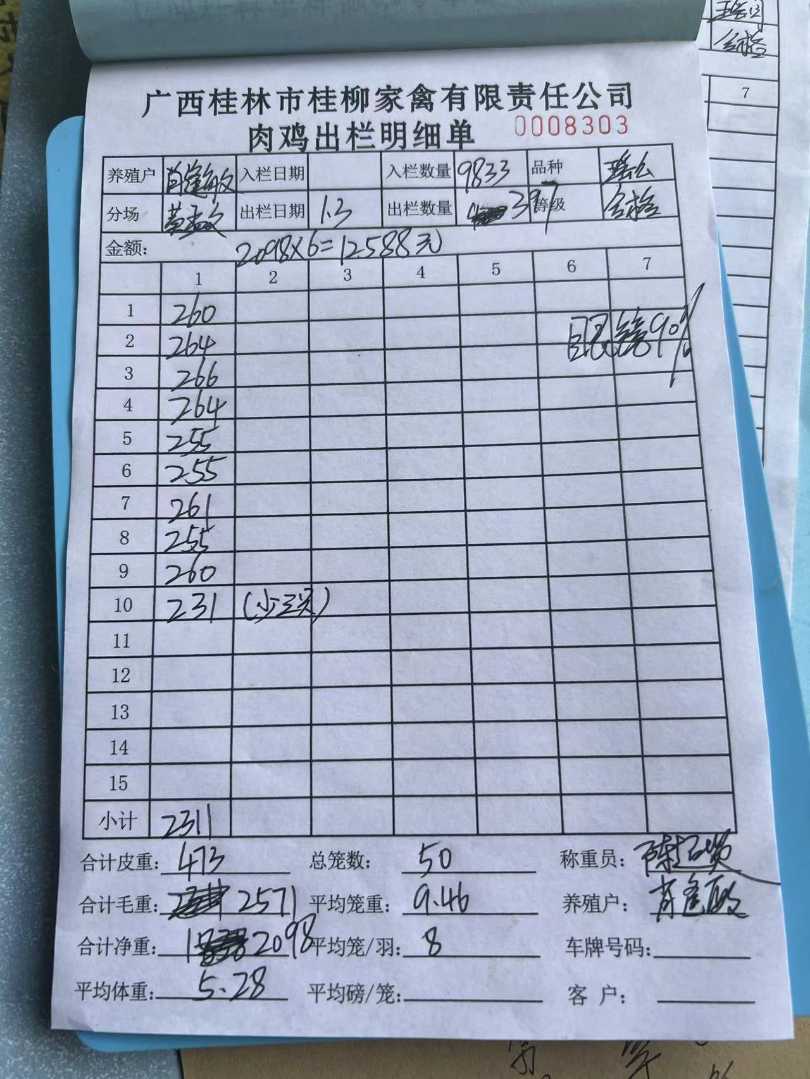 广西桂林市桂柳家禽有限责任公司
肉鸡出栏明细单 0008303
养殖户 肖逢敏 入栏日期 入栏数量 9833 品种
分场 出栏日期 1.3 出栏数量 397 等级 合格
金额: 2098×6=12588元
1 2 3 4 5 6 7
1 260
2 264 90%
3 266
4 264
5 255
6 255
7 261
8 255
9 260
10 231 (少三只)
11
12
13
14
15
小计 2311
合计皮重: 473 总笼数: 50 称重员:
合计毛重: 2571 平均笼重: 9.46 养殖户: 肖逢敏
合计净重: 2098 平均笼/羽: 8 车牌号码:
平均体重: 5.28 平均磅/笼: 客 户:
7